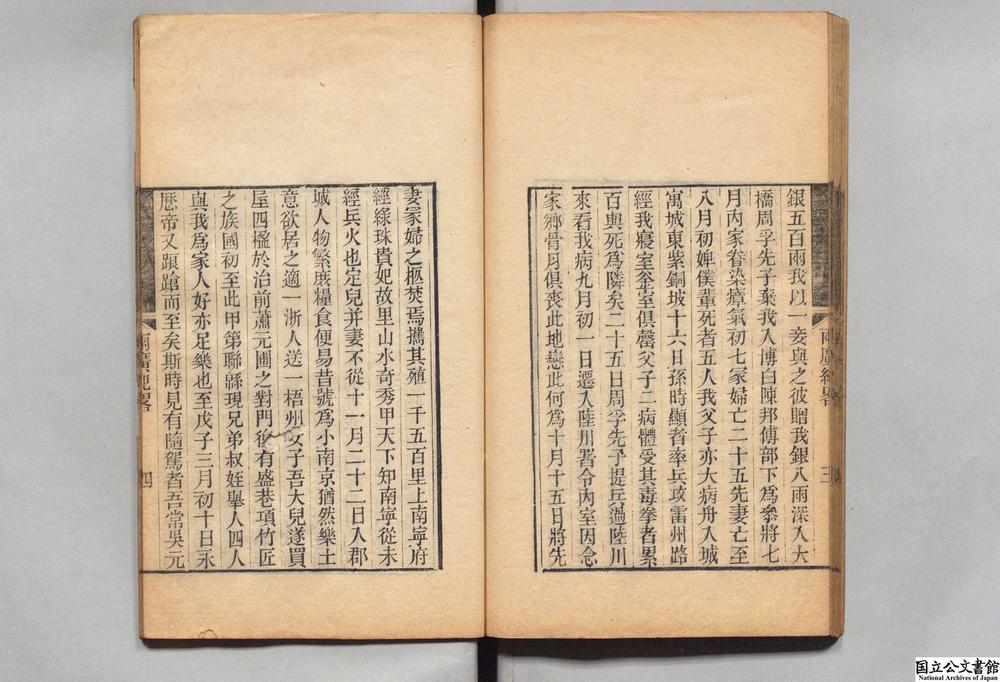 銀五百兩我以一妾與之彼贈我銀八兩深入大
橋周孚先子棄我入博白陳邦傅部下爲叅將七
月內家眷染瘴氣初七冢婦亡二十五先妻亡至
八月初婢僕輩死者五人我父子亦大病舟入城
寓城東紫銅坡十六日孫時顯者率兵攻雷州路
經我寢室釜室俱罄父子二病體受其毒拳者累
百與死爲隣矣二十五日周孚先子提兵過陸川
來看我病九月初一日遷入陸川署令內室因念
家鄉骨月俱喪此地戀此何爲十月十五日將先
兩廣紀畧
三
妻冢婦之柩焚焉攜其殖一千五百里上南寧府
經綠珠貴妃故里山水奇秀甲天下知南寧從未
經兵火也定兒并妻不從十一月二十二日入郡
城人物繁庶糧食便易昔號爲小南京猶然樂土
意欲居之適一浙人送一梧州女子吾大兒遂買
屋四楹於治前蕭元圃之對門後有盛巷項竹匠
之族國初至此甲第聯緜現兄弟叔姪舉人四人
與我爲家人好亦足樂也至戊子三月初十日永
曆帝又踉蹌而至矣斯時見有隨駕者吾常吳元
兩廣紀畧
四
国立公文書館
National Archives of Japan